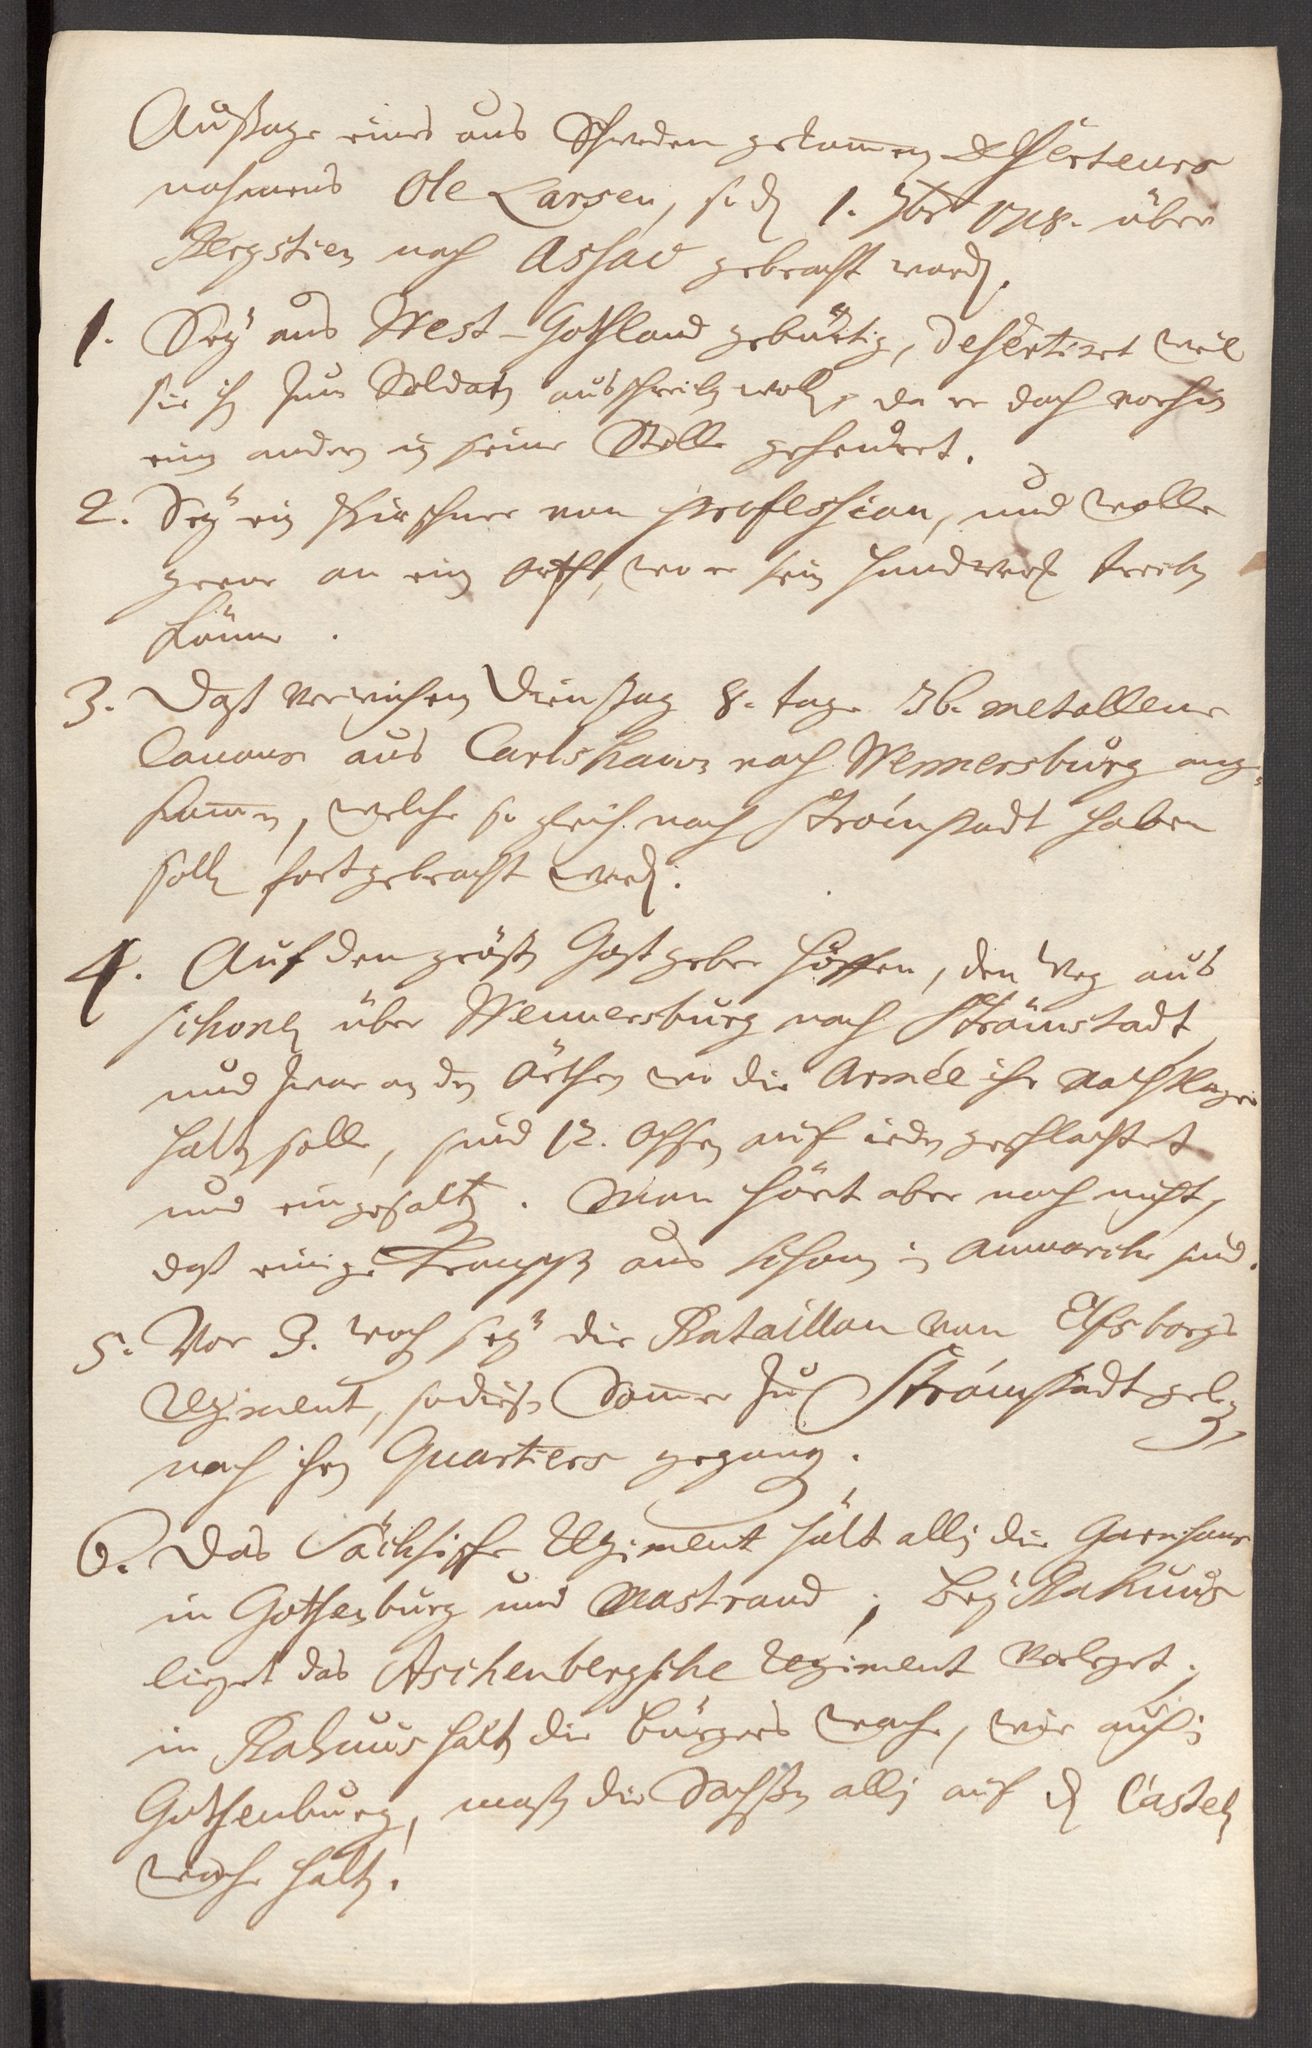 Außage eines aus Schweden gekommen Deserteurs
nahmens Ole Larsen, so den 1. 7br 1718. über
nach Ashav gebracht worden.
1. Seÿ aus West-Gothland gebürtig, desertiret weil
sie ihn zum Soldaten ausschreiben wollen, da er doch vorhin
einen andern in seine Stelle geheuret.
2. Seÿ ein Kürschner von profession, und wolle
gerne an ein Orth, wo er sein Handwerk treiben
könne.
3. Daß verwichenen Dienstag 8. tage 36. metallene
Canons aus Carlshawn nach Wennersburg ange=
kommen, welche so gleich nach Strömstadt haben
sollen fortgebracht werden.
4. Auf den größten Gastgeber Höffen, den Weg aus
Schonen über Wennersburg nach Strömstadt
und zwar an den Örthen wo die Armée ihr Nachtlager
halten solle, sind 12. Ochsen auf jeden geschlachtet
und eingesaltzen. Man hört aber noch nicht,
daß einige Trouppen aus Schonen in Anmarche sind.
5. Vor 3. wochen seÿ die Bataillon von Elfsborgs
Regiment, so diesen Sommer zu Strömstadt gelegen,
nach ihren Quartiers gegangen.
6. Das Sächsische Regiment hält allein die Garnison
in Gothenburg und Mastrand; beÿ Bahuus
lieget das Aschenbergsche Regiment verleget.
in Bahuus halten die bürgers wache, wie auch in
Gothenburg, maßen die Sachsen allein auf den Castelen
wache halten.